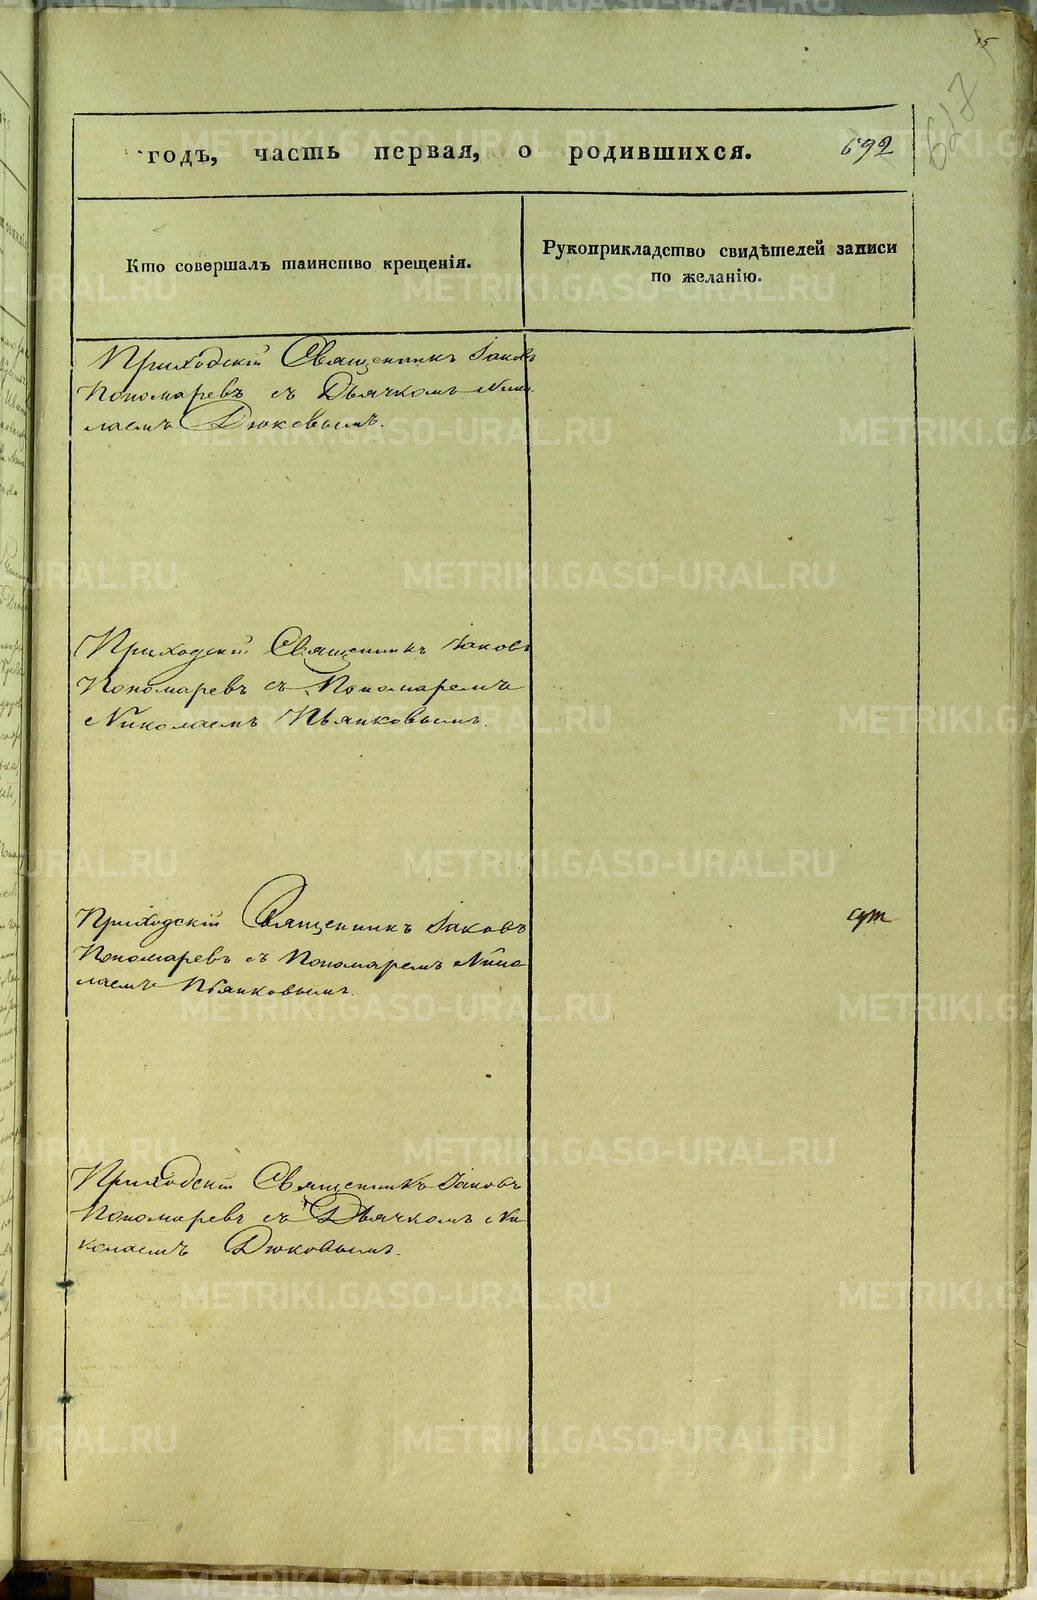 15
617
годъ, часть первая, о родившихся. 692
Кто совершалъ таинство крещенія.
Рукоприкладство свидѣтелей записи
по желанію.
Приходскій Священникъ Іаковъ
Пономаревъ съ Дьячкомъ Нико
лаемъ Дюковымъ.
Приходскій Священникъ Іаковъ
Пономаревъ съ Пономаремъ
Николаемъ Пьянковымъ.
Приходскій Священникъ Іаковъ
Пономаревъ съ Пономаремъ Нико
лаемъ Пьянковымъ.
Приходскій Священникъ Іаковъ
Пономаревъ съ Дьячкомъ Ни
колаемъ Дюковымъ.
METRIKI.GASO-URAL.RU